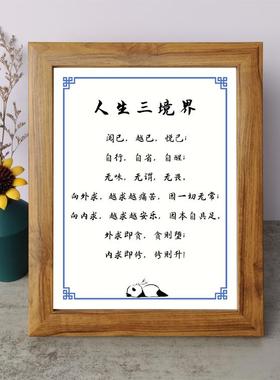 人生三境界
阅己，越己，悦己；
自行，自省，自醒；
无味，无谓，无畏，
向外求，越求越痛苦，因一切无常；
向内求，越求越安乐，因本自具足，
外求即贪，贪则堕；
内求即修，修则升！